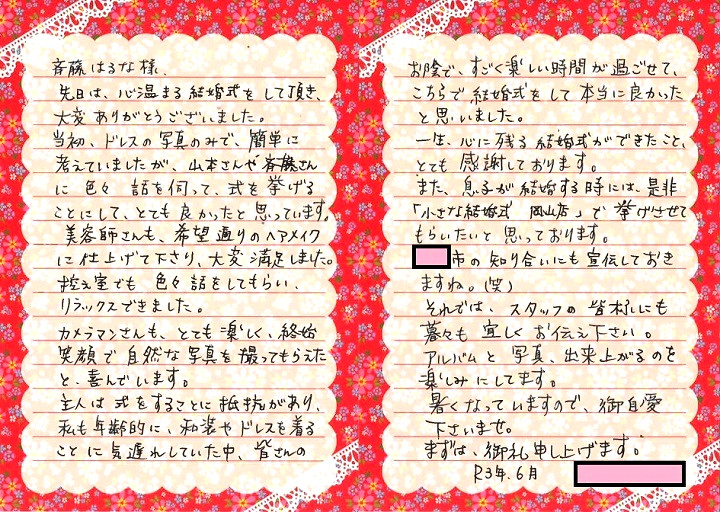 斉藤はるな様.
先日は、心温まる結婚式をして頂き、
大変ありがとうございました。
当初、ドレスの写真のみで、簡単に
考えていましたが、山本さんや斉藤さん
に色々話を伺って、式を挙げる
ことにして、とても良かったと思っています。
美容師さんも、希望通りのヘアメイク
に仕上げて下さり、大変満足しました。
控え室でも色々話をしてもらい、
リラックスできました。
カメラマンさんも、とても楽しく、終始
笑顔で自然な写真を撮ってもらえた
と、喜んでいます。
主人は式をすることに抵抗があり、
私も年齢的に、和装やドレスを着る
ことに気遅れしていた中、皆さんの
お陰で、すごく楽しい時間が過ごせて、
こちらで結婚式をして本当に良かった
と思いました。
一生、心に残る結婚式ができたこと、
とても感謝しております。
また、息子が結婚する時には、是非
「小さな結婚式 岡山店」で挙げさせて
もらいたいと思っております。
市の知り合いにも宣伝しておき
ますね。(笑)
それでは、スタッフの皆様にも
暮々も宜しくお伝え下さい。
アルバムと写真、出来上がるのを
楽しみにしてます。
暑くなっていますので、御自愛
下さいませ。
まずは、御礼申し上げます。
R3年.6月